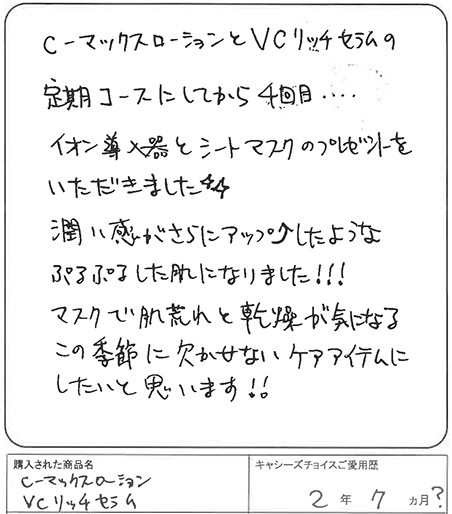 C-マックスローションとVCリッチセラムの
定期コースにしてから4回目....
イオン導入器とシートマスクのプレゼントを
いただきました
潤い感がさらにアップ↗したような
ぷるぷるした肌になりました!!!
マスクで肌荒れと乾燥が気になる
この季節に欠かせないケアアイテムに
したいと思います!!
購入された商品名
C-マックスローション
VCリッチセラム
キャシーズチョイスご愛用歴
2年7ヵ月?